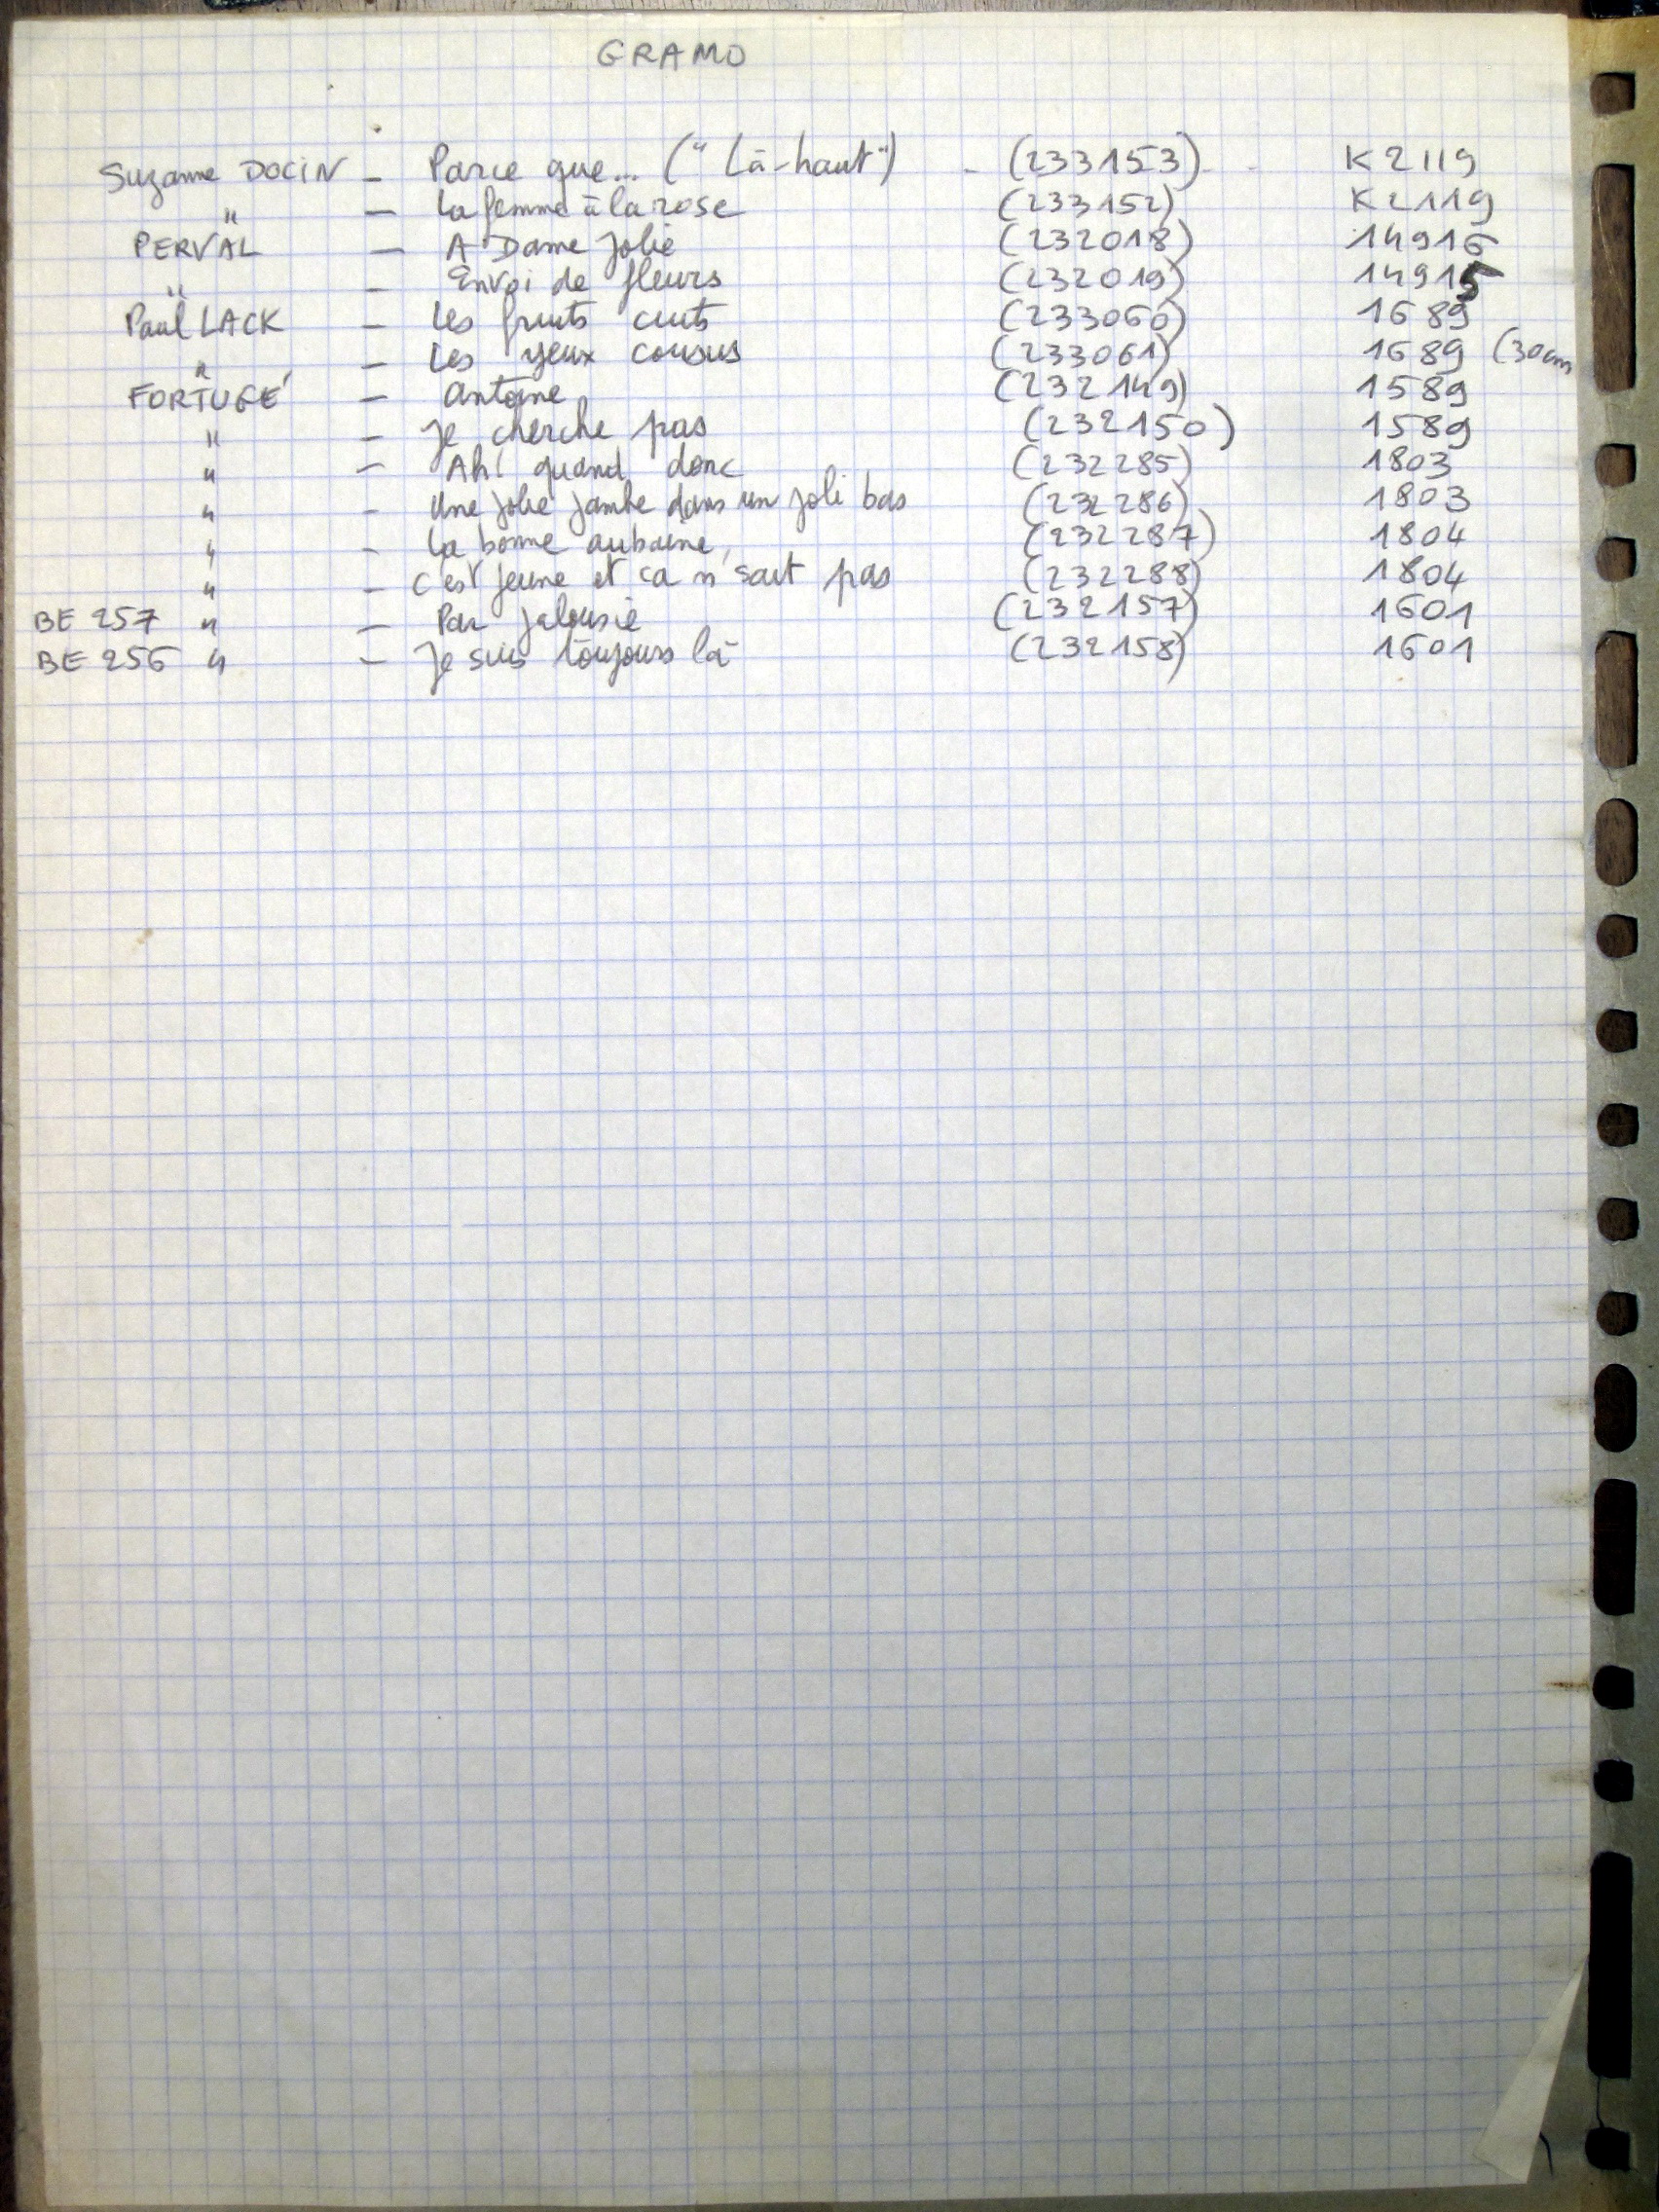 GRAMO
Suzanne DOCIN - Parce que... ("Là-haut") - (233153) - K2119
" - La femme à la rose (233152) K2119
PERVAL - A Dame jolie (232018) 14916
" - Envoi de fleurs (232019) 14915
Paul LACK - Les fruits cuits (233060) 1689
" - Les yeux cousus (233061) 1689 (30cm
FORTUGÉ - Antoine (232149) 1589
" - Je cherche pas (232150) 1589
" - Ah! quand donc (232285) 1803
" - Une jolie jambe dans un joli bas (232286) 1803
" - La bonne aubaine (232287) 1804
" - C'est jeune et ca n'sait pas (232288) 1804
BE 257 " - Par jalousie (232157) 1601
BE 256 " - Je suis toujours là (232158) 1601